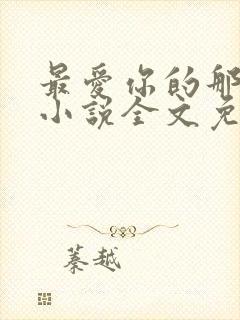 最爱你的那
小说全文免
蓁越